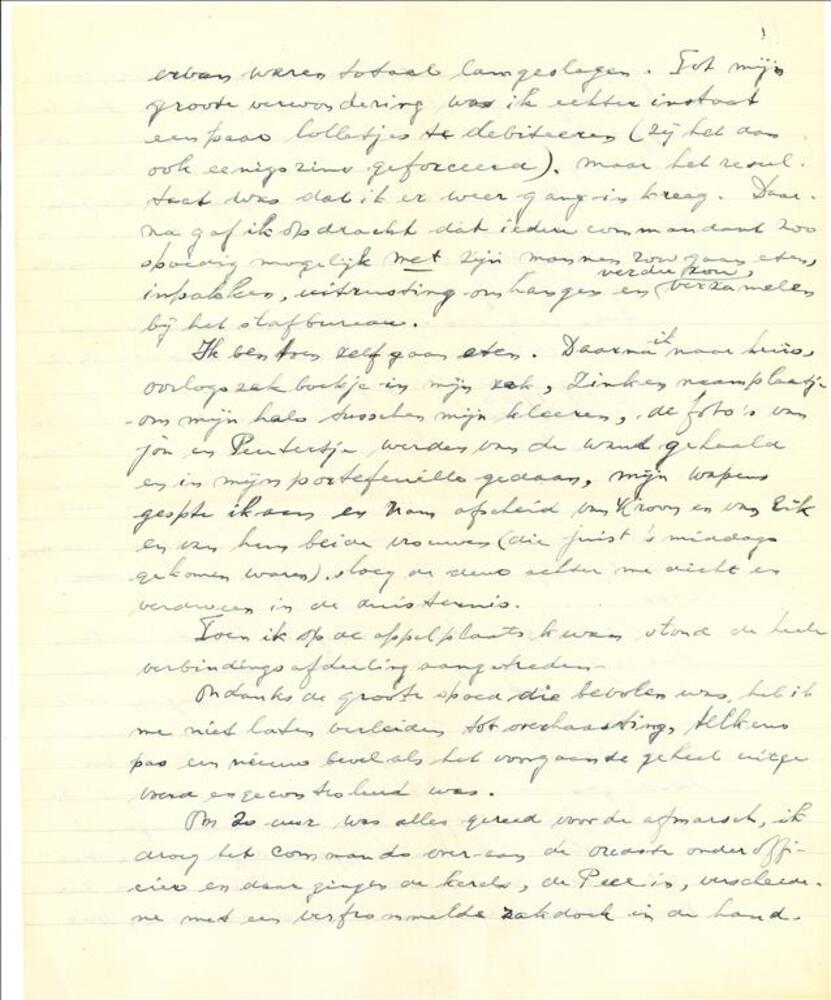 waren totaal lamgeslagen. Tot mijn
groote verwondering was ik echter instaat
een paar lolletjes te debiteeren (zij het dan
ook eenigszins geforceerd). maar het resul-
taat was dat ik er weer gang in kreeg. Daar-
na gaf ik opdracht dat iedere commandant zoo
spoedig mogelijk met zijn mannen zou gaan eten,
verder zou,
inpakken, uitrusting omhangen en (verzamelen
bij het stafbureau.
Ik ben toen zelf gaan eten. Daarna ik naar huis,
oorlogszakboekje in mijn zak, Zinken naamplaatje
om mijn hals tusschen mijn kleeren, de foto's van
Jon en Peutertje werden van de wand gehaald
en in mijn portefeuille gedaan, mijn wapens
gespte ik aan en nam afscheid van Kroon en van Eik
en van hun beide vrouwen (die juist 's middags
gekomen waren), sloeg de deur achter me dicht en
verdween in de duisternis.
Toen ik op de appelplaats kwam stond de heele
verbindingsafdeeling aangetreden.
Ondanks de groote spoed die bevolen was, heb ik
me niet laten verleiden tot overhaasting, telkens
pas een nieuw bevel als het voorgaande geheel uitge
voerd en gecontroleerd was.
Om 20 uur was alles gereed voor de afmarsch, ik
droeg het commando over aan de oudste onderoffi-
cier en daar gingen de kerels, de Peel in, verscheide-
ne met een verfrommelde zakdoek in de hand.